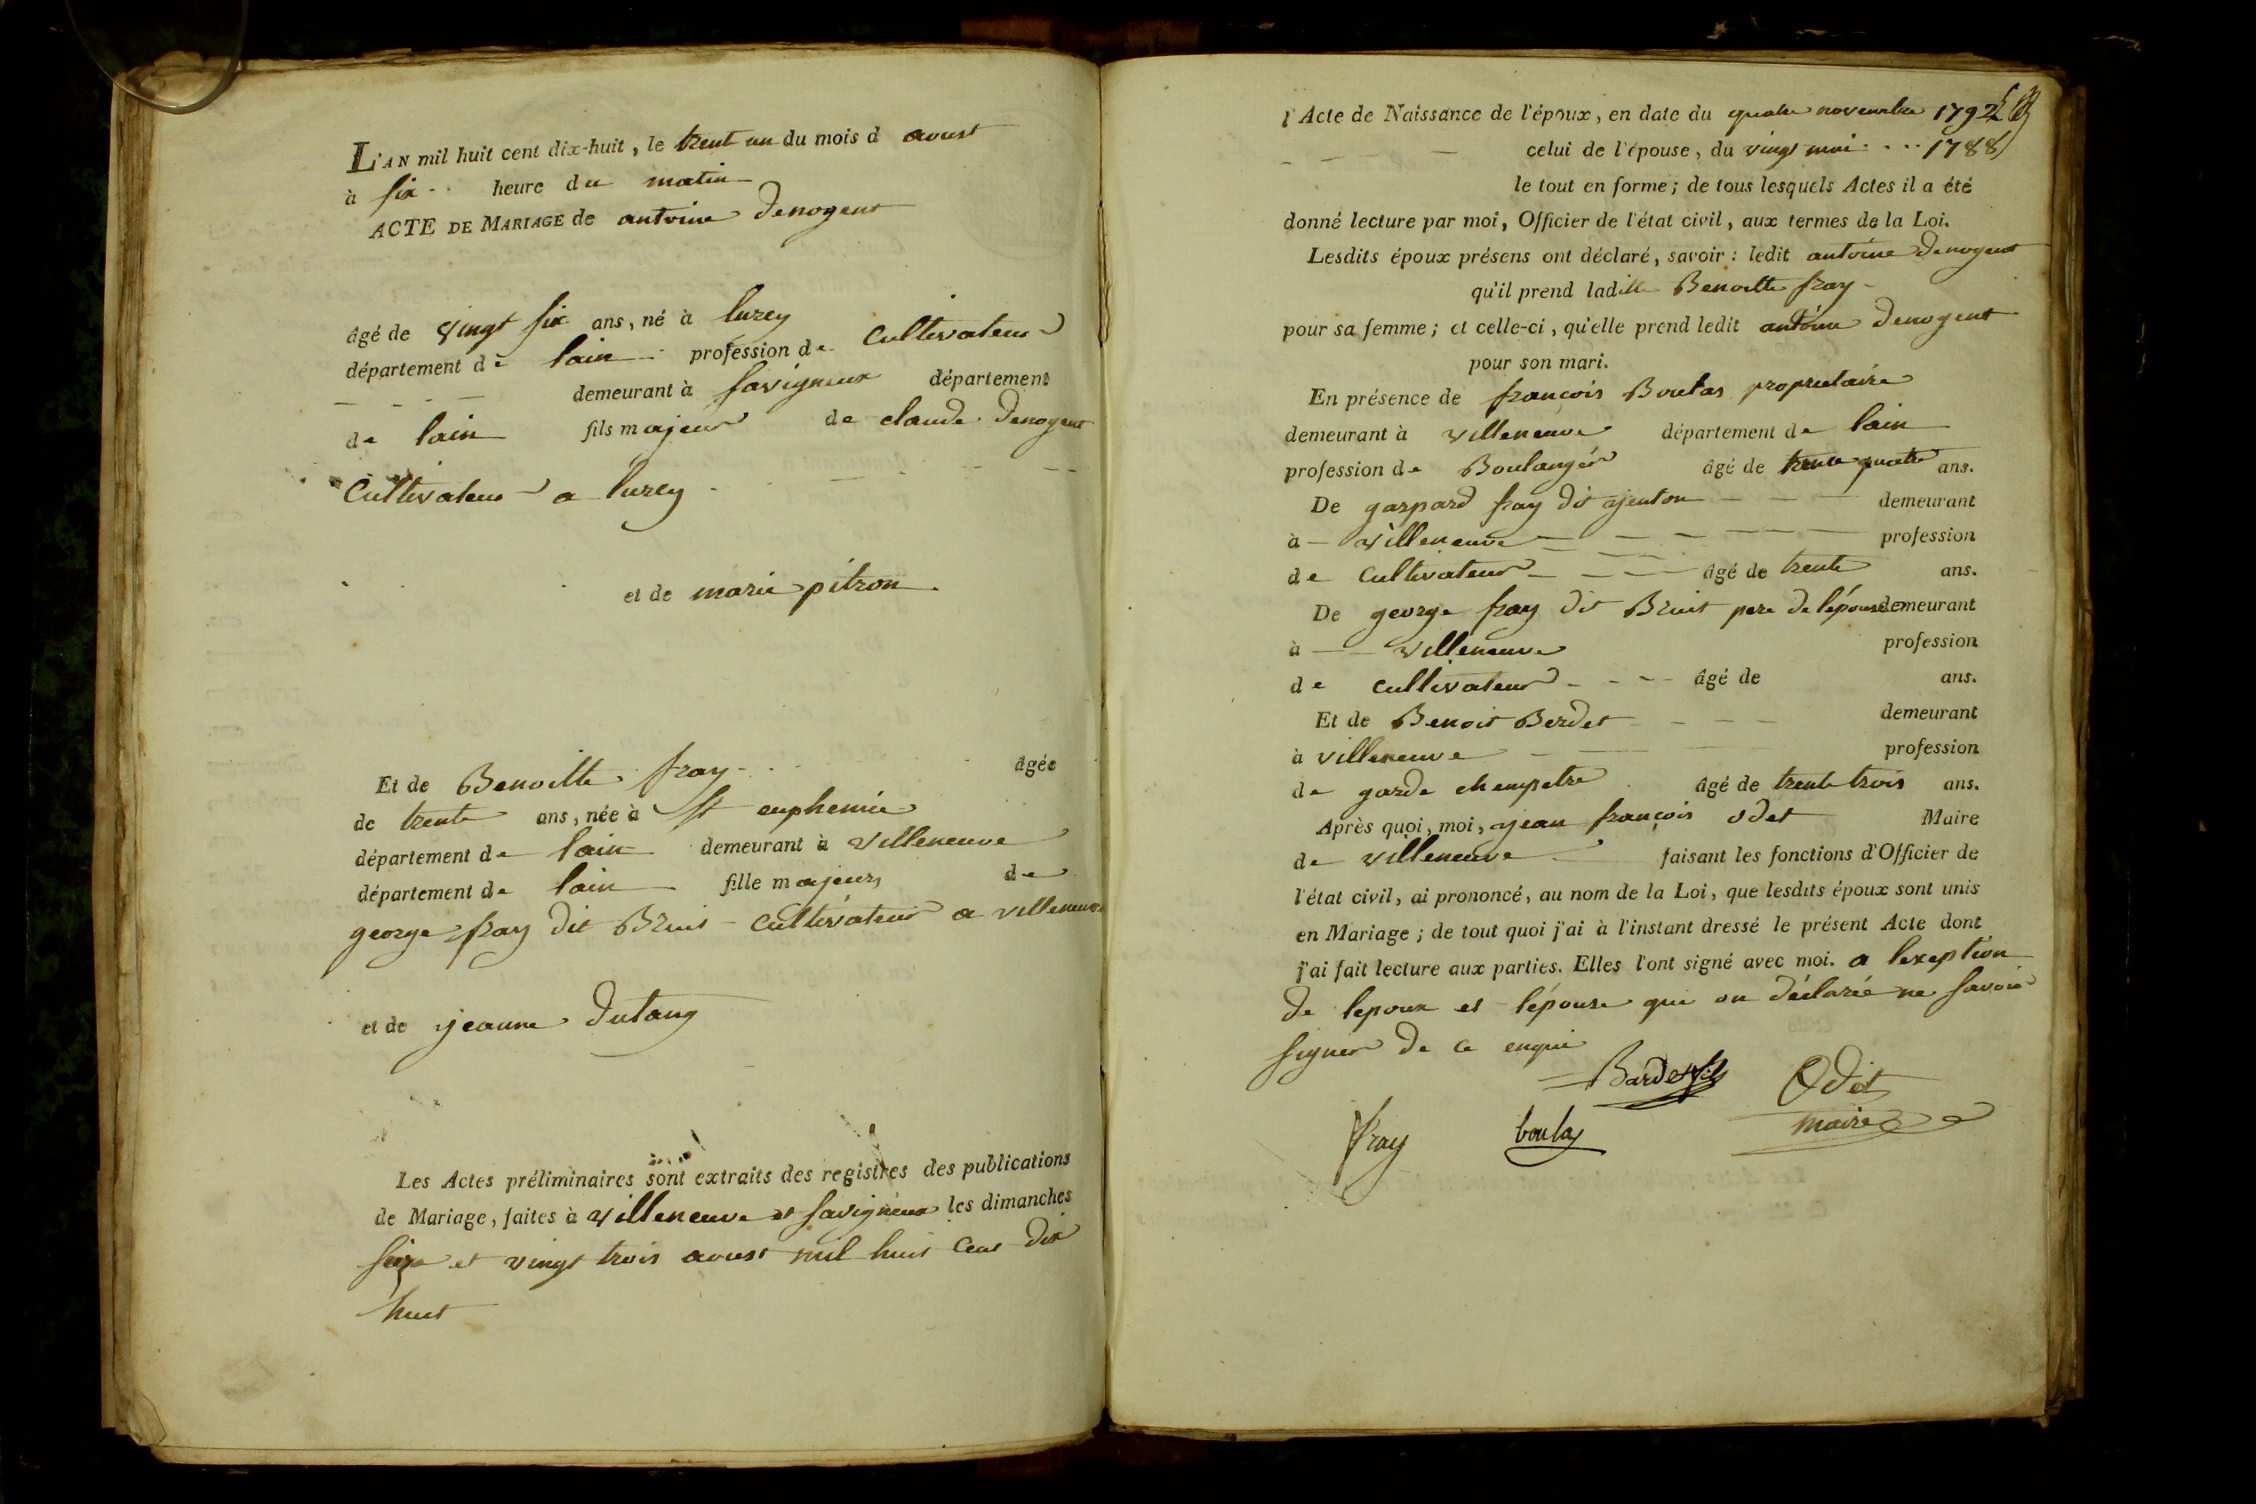 L'AN mil huit cent dix-huit, le trent un du mois d aoust
à six heure du matin
ACTE DE MARIAGE de antoine Denogent
âgé de vingt six ans, né à lurcy
département de lain profession de Cultivateur
demeurant à savigneux département
de lain fils majeur de claude Denogent
Cultivateur a lurcy
et de marie pitron
Et de Benoitte fray âgée
de trente ans, née à St euphemie
département de lain demeurant à villeneuve
département de lain fille majeure de
george fray dit Bruit cultivateur a villeneuve
et de jeanne Dutang
Les Actes préliminaires sont extraits des registres des publications
de Mariage, faites à villeneuve et savigneux les dimanches
seize et vingt trois aoust mil huit cent dix
huit
l'Acte de Naissance de l'époux, en date du quatre novembre 1792
celui de l'épouse, du vingt mai 1788
le tout en forme; de tous lesquels Actes il a été
donné lecture par moi, Officier de l'état civil, aux termes de la Loi.
Lesdits époux présens ont déclaré, savoir : ledit antoine Denogent
qu'il prend laditte Benoitte fray
pour sa femme; et celle-ci, qu'elle prend ledit antoine Denogent
pour son mari.
En présence de françois Boulas proprietaire
demeurant à villeneuve département de lain
profession de Boulangér âgé de trente quatre ans.
De gaspard fray dit ajenton demeurant
à villeneuve profession
de Cultivateur âgé de trente ans.
De george fray dit Bruit pere de lépouse demeurant
à villeneuve profession
de cultivateur âgé de ans.
Et de Benoit Berdet demeurant
à villeneuve profession
de garde chempetre âgé de trente trois ans.
Après quoi, moi, jean françois odet Maire
de villeneuve faisant les fonctions d'Officier de
l'état civil, ai prononcé, au nom de la Loi, que lesdits époux sont unis
en Mariage; de tout quoi j'ai à l'instant dressé le présent Acte dont
j'ai fait lecture aux parties. Elles l'ont signé avec moi. a lexeption
de lepoux et lépouse qui on déclarée ne savoir
signer de ce enqui
Bardet fils Odet
fray boulas maire